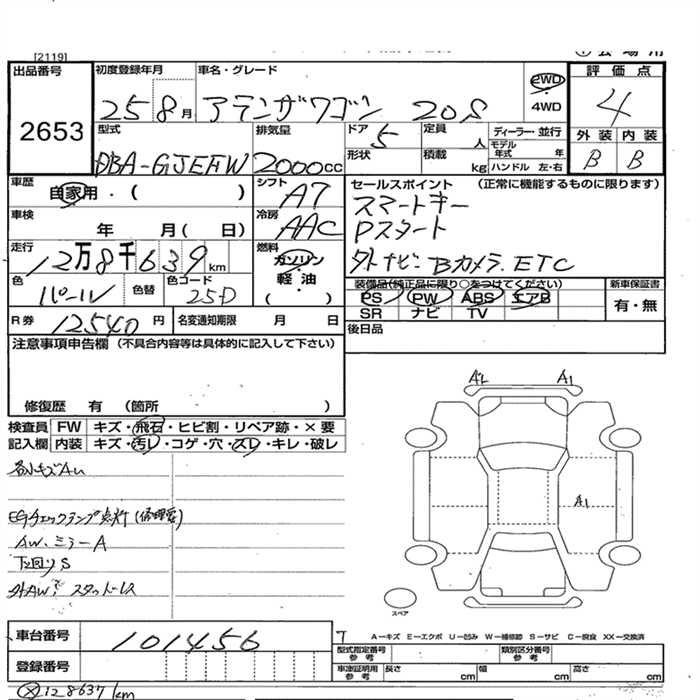 [2119]
出品番号 初度登録年月 車名・グレード 2WD 評価点
2653 25 8月 アテンザワゴン 20S 4WD 4
型式 排気量 ドア 定員 ディーラー・並行 外装 内装
DBA-GJEFW 2000cc 5 人 モデル年式 年 B B
形状 積載 kg ハンドル 左・右
車歴 シフト セールスポイント (正常に機能するものに限ります)
自家用・( ) A7 スマートキー
車検 冷房 Pスタート
年 月( 日) AAC
走行 燃料 外ナビ Bカメラ.ETC
12万8千639km ガソリン・軽油 ( )
色 色替 色コード 装備品(純正品に限り○をつけてください) 新車保証書
パール 25D PS PW ABS エアB 有・無
SR ナビ TV
R券 12540円 名変通知期限 月 日 後日品
注意事項申告欄 (不具合内容等は具体的に記入して下さい)
修復歴 有 (箇所 )
検査員 FW キズ・飛石・ヒビ割・リペア跡・×要
記入欄 内装 キズ・汚レ・コゲ・穴・スレ・キレ・破レ
A2 A1
A1
各小キズAU
EGチェックランプ点灯(修理要)
AW、ミラーA
下回りS
外AW スタッドレス
スペア
車台番号 101456 7
A-キズ E-エクボ U-凹み W-補修跡 S-サビ C-腐食 XX-交換済
登録番号
型式指定番号 参考 類別区分番号 参考
車庫証明用 参考 長さ cm 幅 cm 高さ cm
128639km